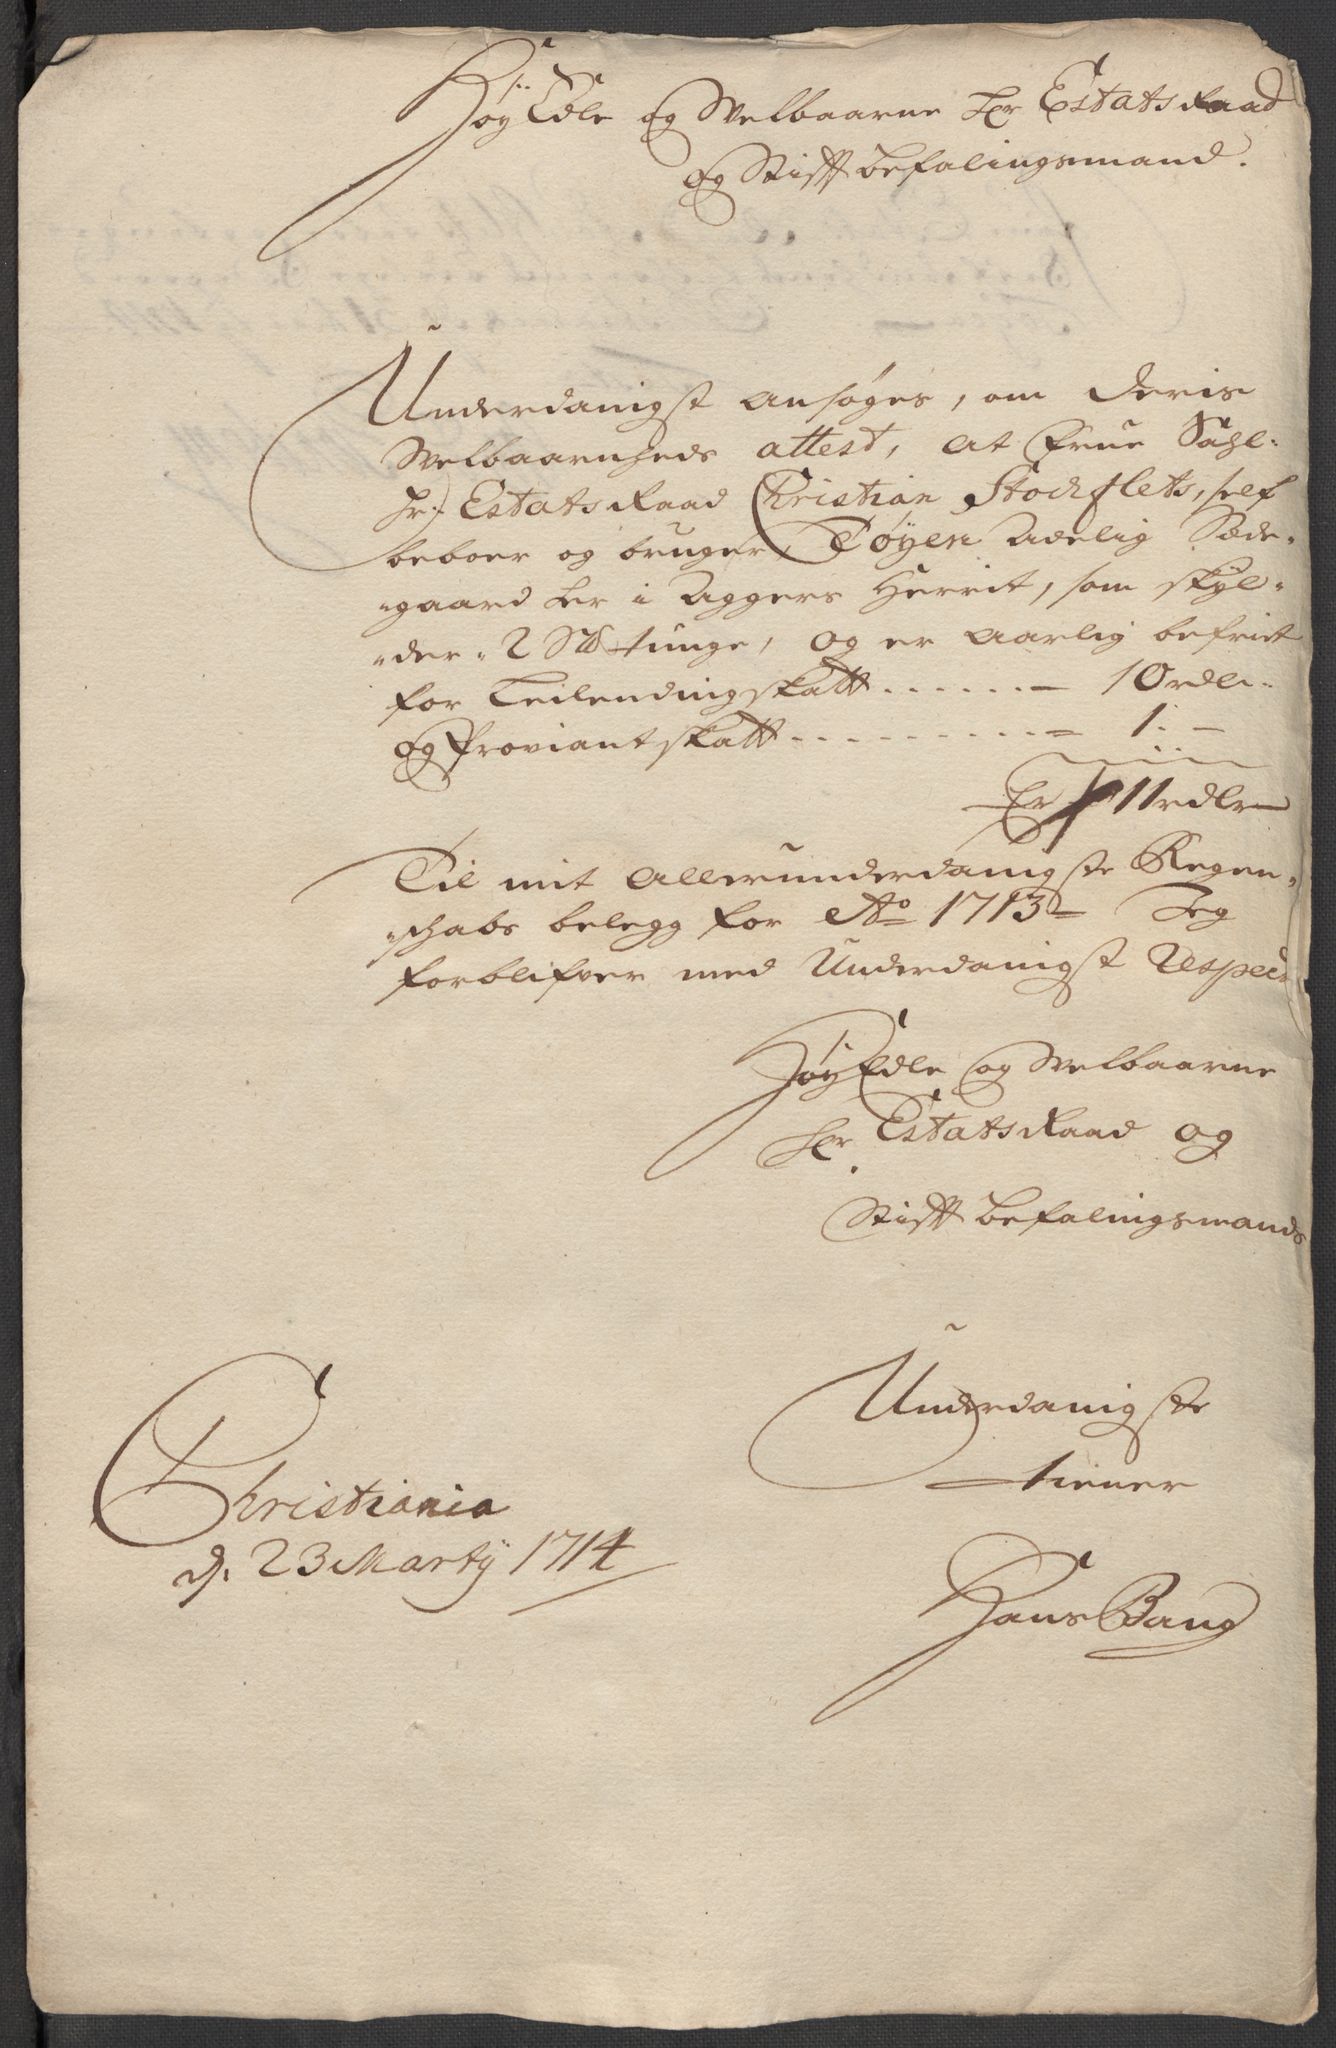 Høy Edle og Welbaarne Hr Estats Raad
og Stifft befalingsmand.
Underdanigst ansøges, om Deris
Welbaarnheds attest, at Frue Sahl-
Hr: Estats Raad Christian Stochflets, self
beboer og bruger, Tøyen Adelig Sæde-
-gaard her i Aggers Herrit, som skyl-
-der - 2 Skd tunge, og er aarlig befriet
for Leilendingskatt . . . . . . — 10 rdlr.
og Proviantskatt . . . . . . . . . — 1: —
Er 11 rdlr
Til mit allerunderdanigste Regen-
-schabs belegg for Ao 1713 — Jeg
forblifver med Underdanigst Respect
Høy Edle og Welbaarne
Hr Estats Raad og
Stifft befalingsmands
Underdanigste
tiener
Christiania
d. 23 Marty 1714
Hans Bang